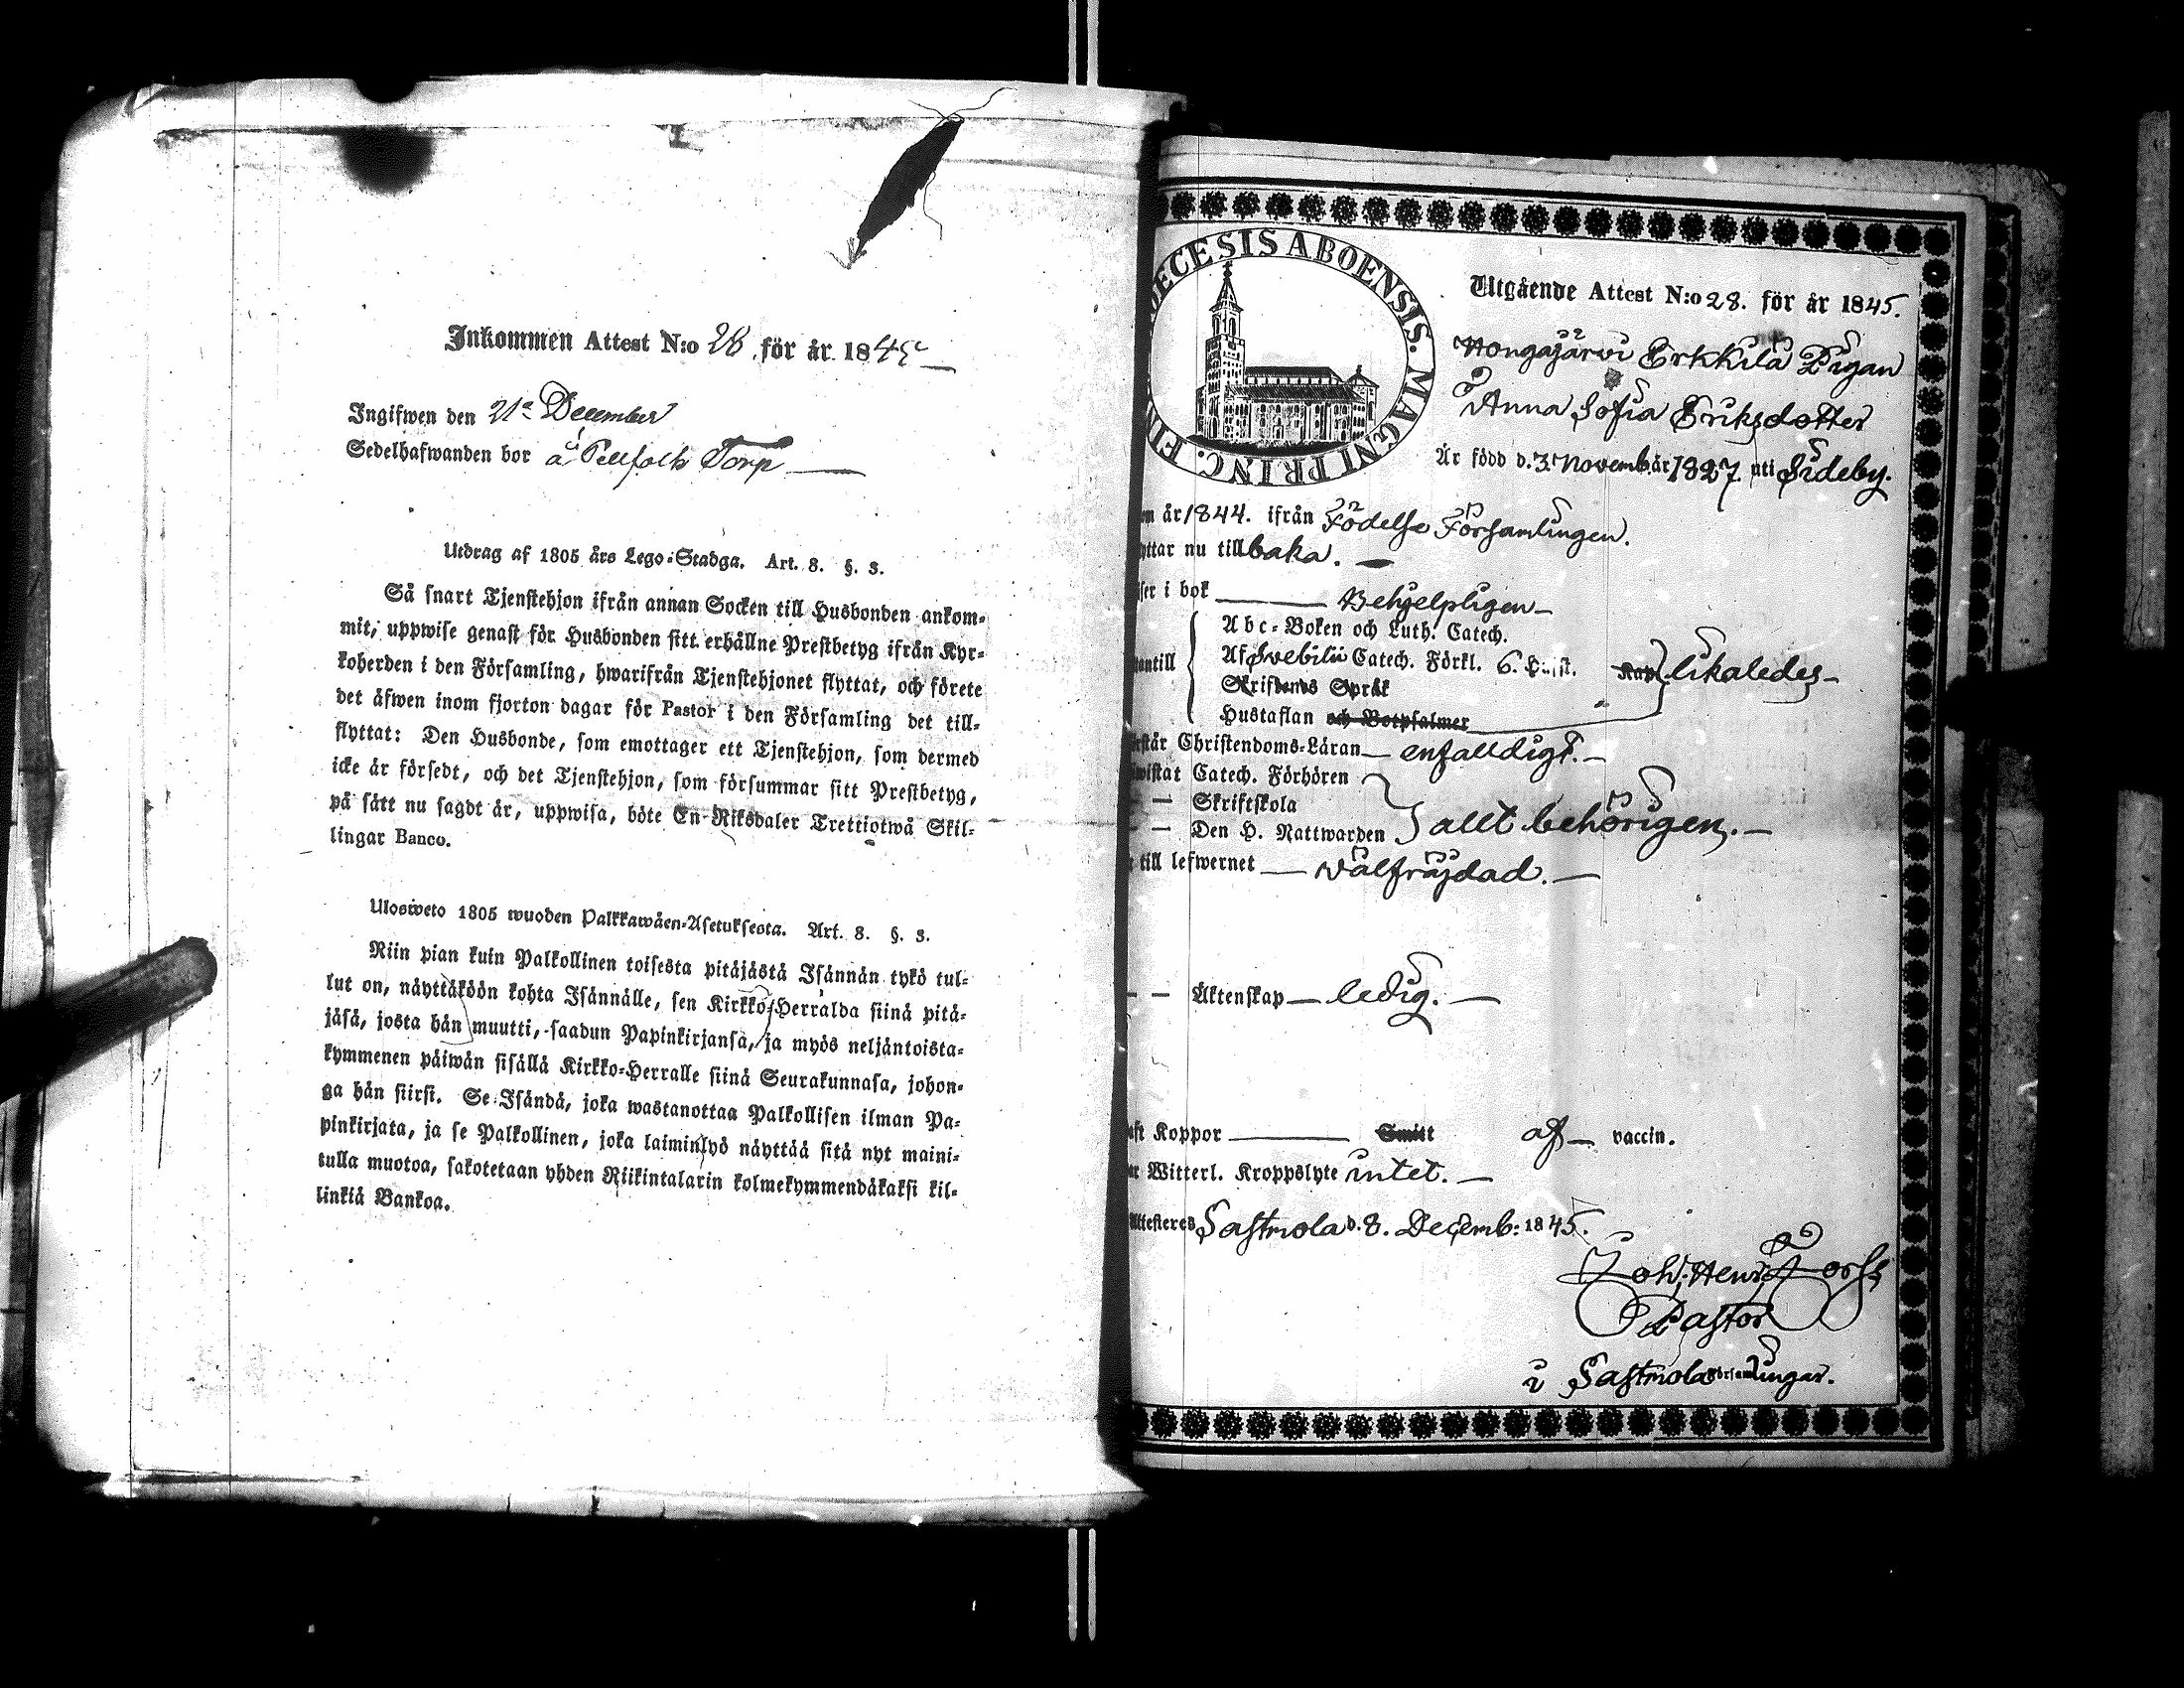 Inkommen Attest N:o 28 för år 1845
Ingifwen den 21a December
Sedelhafwanden bor å Pellfolk Torp
Utdrag af 1805 års Lego-Stadga. Art. 8. §. 3.
Så snart Tjenstehjon ifrån annan Socken till Husbonden ankom-
mit, uppwise genast för Husbonden sitt erhållne Prestbetyg ifrån Kyr-
koherden i den Församling, hwarifrån Tjenstehjonet flyttat, och förete
det äfwen inom fjorton dagar för Pastor i den Församling det till-
flyttat: Den Husbonde, som emottager ett Tjenstehjon, som dermed
icke är försedt, och det Tjenstehjon, som försummar sitt Prestbetyg,
på sätt nu sagdt är, uppwisa, böte En Riksdaler Trettiotwå Skil-
lingar Banco.
Ulosweto 1805 wuoden Palkkawäen-Asetuksesta. Art. 8. §. 3.
Niin pian kuin Palkollinen toisesta pitäjästä Isännän tykö tul-
lut on, näyttäköön kohta Isännälle, sen Kirkko-Herralda siinä pitä-
jäsä, josta hän muutti, saadun Papinkirjansa, ja myös neljäntoista-
kymmenen päiwän sisällä Kirkko-Herralle siinä Seurakunnasa, johon-
ga hän siirsi. Se Isändä, joka wastanottaa Palkollisen ilman Pa-
pinkirjata, ja se Palkollinen, joka laiminlyö näyttää sitä nyt maini-
tulla muotoa, sakotetaan yhden Riikintalarin kolmekymmendäkaksi kil-
linkiä Bankoa.
ECESIS ABOENSIS. MAGNI PRINC. FIN
Utgående Attest N:o 28. för år 1845.
Nongajärvi Erkkilä Pigan
Anna Sofia Eriksdotter
Är född d. 3. Novemb. år 1827. uti Sideby.
år 1844. ifrån Födelse Församlingen.
yttar nu tillbaka.
i bok Behjelpligen
Abc-Boken och Luth. Catech.
antill Af Svebilii Catech. Förkl. 6. Hufst. Kap. likaledes
Skriftens Språk
Hustaflan och Botpsalmer
står Christendoms-Läran enfalldigt.
wistat Catech. Förhören
Skriftskola
Den H. Nattwarden allt behörigen.
till lefwernet wälfräjdad.
Äktenskap ledig.
Koppor Smitt af vaccin.
Witterl. Kroppslyte intet.
Attesteres Sastmola d. 8. Decemb: 1845.
Joh: Henr Forss
Pastor
i Sastmola församlingar.